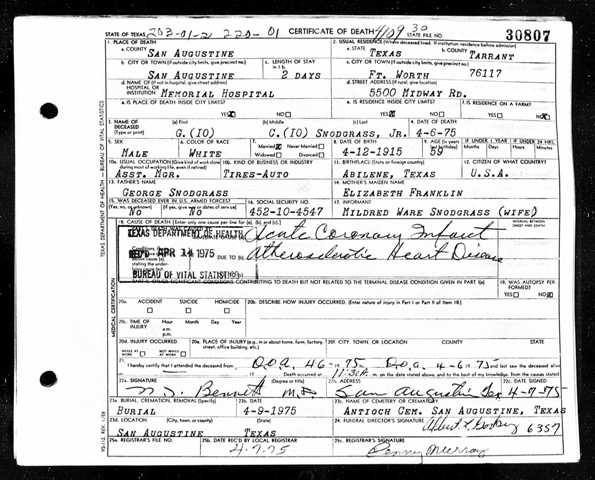 STATE OF TEXAS 203-01-2 220-01 CERTIFICATE OF DEATH 4109 30 STATE FILE NO. 30807
1. PLACE OF DEATH 2. USUAL RESIDENCE (Where deceased lived. If institution residence before admission)
a. COUNTY SAN AUGUSTINE a. STATE TEXAS b. COUNTY TARRANT
b. CITY OR TOWN (If outside city limits, give precinct no.) c. LENGTH OF STAY in 1 b c. CITY OR TOWN (If outside city limits, give precinct no.)
SAN AUGUSTINE 2 DAYS FT. WORTH 76117
d. NAME OF (If not in hospital, give street address) HOSPITAL OR INSTITUTION MEMORIAL HOSPITAL d. STREET ADDRESS (If rural, give location) 5500 MIDWAY RD.
e. IS PLACE OF DEATH INSIDE CITY LIMITS? YES NO e. IS RESIDENCE INSIDE CITY LIMITS? YES NO f. IS RESIDENCE ON A FARM? YES NO
3. NAME OF DECEASED (Type or print) (a) First (b) Middle (c) Last 4. DATE OF DEATH
G.(IO) C.(IO) SNODGRASS, JR. 4-6-75
5. SEX 6. COLOR OR RACE 7. Married Never Married Widowed Divorced 8. DATE OF BIRTH 9. AGE (In years last birthday) IF UNDER 1 YEAR Months Days IF UNDER 24 HRS. Hours Min.
MALE WHITE 4-12-1915 59
10a. USUAL OCCUPATION (Give kind of work done 10b. KIND OF BUSINESS OR INDUSTRY 11. BIRTHPLACE (State or foreign country) 12. CITIZEN OF WHAT COUNTRY?
ASST. MGR. TIRES-AUTO ABILENE, TEXAS U.S.A.
13. FATHER'S NAME 14. MOTHER'S MAIDEN NAME
GEORGE SNODGRASS ELIZABETH FRANKLIN
15. WAS DECEASED EVER IN U.S. ARMED FORCES? 16. SOCIAL SECURITY NO. 17. INFORMANT
(Yes, no, or unknown) (If yes, give war or dates of service)
NO NO 452-10-4547 MILDRED WARE SNODGRASS (WIFE)
18. CAUSE OF DEATH (Enter only one cause per line for (a), (b), and (c).) INTERVAL BETWEEN ONSET AND DEATH
TEXAS DEPARTMENT OF HEALTH Acute Coronary Infarct
REC'D APR 14 1975 DUE TO Atherosclerotic Heart Disease
BUREAU OF VITAL STATISTICS
CONDITIONS CONTRIBUTING TO DEATH BUT NOT RELATED TO THE TERMINAL DISEASE CONDITION GIVEN IN PART I(a) 19. WAS AUTOPSY PERFORMED? YES NO
20a. ACCIDENT SUICIDE HOMICIDE 20b. DESCRIBE HOW INJURY OCCURRED. (Enter nature of injury in Part I or Part II of Item 18)
20c. TIME OF INJURY Hour a.m. p.m. Month Day Year
20d. INJURY OCCURRED WHILE AT WORK NOT WHILE AT WORK 20e. PLACE OF INJURY (e.g., in or about home, farm, factory, street, office building, etc.) 20f. CITY, TOWN, OR LOCATION COUNTY STATE
21. I hereby certify that I attended the deceased from D.O.A. 4-6-75 D.O.A. 4-6-75 and last saw the deceased alive
Death occurred at 11:30A m. on the date stated above; and to the best of my knowledge, from the causes stated
22a. SIGNATURE (Degree or title) 22b. ADDRESS 22c. DATE SIGNED
Bennett M.D. San Augustine Tex 4-7-75
23a. BURIAL, CREMATION, REMOVAL (Specify) 23b. DATE 23c. NAME OF CEMETERY OR CREMATORY
BURIAL 4-9-1975 ANTIOCH CEM. SAN AUGUSTINE, TEXAS
23d. LOCATION (City, town, or county) (State) 24. FUNERAL DIRECTOR'S SIGNATURE
SAN AUGUSTINE TEXAS 6357
25a. REGISTRAR'S FILE NO. 25b. DATE REC'D BY LOCAL REGISTRAR 25c. REGISTRAR'S SIGNATURE
4-7-75 Penny Murray
TEXAS DEPARTMENT OF HEALTH — BUREAU OF VITAL STATISTICS
MEDICAL CERTIFICATION